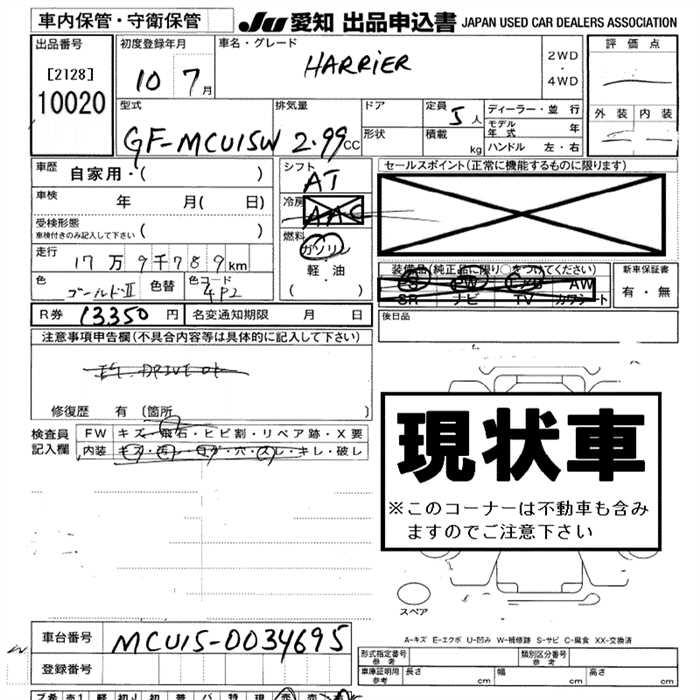 車内保管・守衛保管 JU 愛知 出品申込書 JAPAN USED CAR DEALERS ASSOCIATION
出品番号 初度登録年月 車名・グレード 評価点
[2128] 10 7月 HARRIER 2WD・4WD
10020 外装 内装
型式 排気量 ドア 定員 5人 ディーラー・並行
GF-MCU15W 2.99CC 形状 積載 kg モデル年式 年
ハンドル 左・右
車歴 自家用・( ) シフト AT セールスポイント(正常に機能するものに限ります)
車検 年 月( 日) 冷房 AAC
受検形態 車検付きのみ記入して下さい ( ) 燃料 ガソリン
走行 17万9千789km 軽・油
色 ゴールドII 色替 色コード 4P2 ( ) 装備品(純正品に限り○をつけてください) 新車保証書
PS PW AW 有・無
SR ナビ TV カワシート
R券 13350円 名変通知期限 月 日 後日品
注意事項申告欄(不具合内容等は具体的に記入して下さい)
修復歴 有 〔箇所 〕
検査員記入欄 FW キズ・飛石・ヒビ割・リペア跡・X要
内装 キズ・汚レ・コゲ・穴・スレ・キレ・破レ
現状車
※このコーナーは不動車も含み
ますのでご注意下さい
スペア
A-キズ E-エクボ U-凹み W-補修跡 S-サビ C-腐食 XX-交換済
車台番号 MCU15-0034695
登録番号
型式指定番号 参考 類別区分番号 参考
車庫証明用 参考 長さ cm 幅 cm 高さ cm